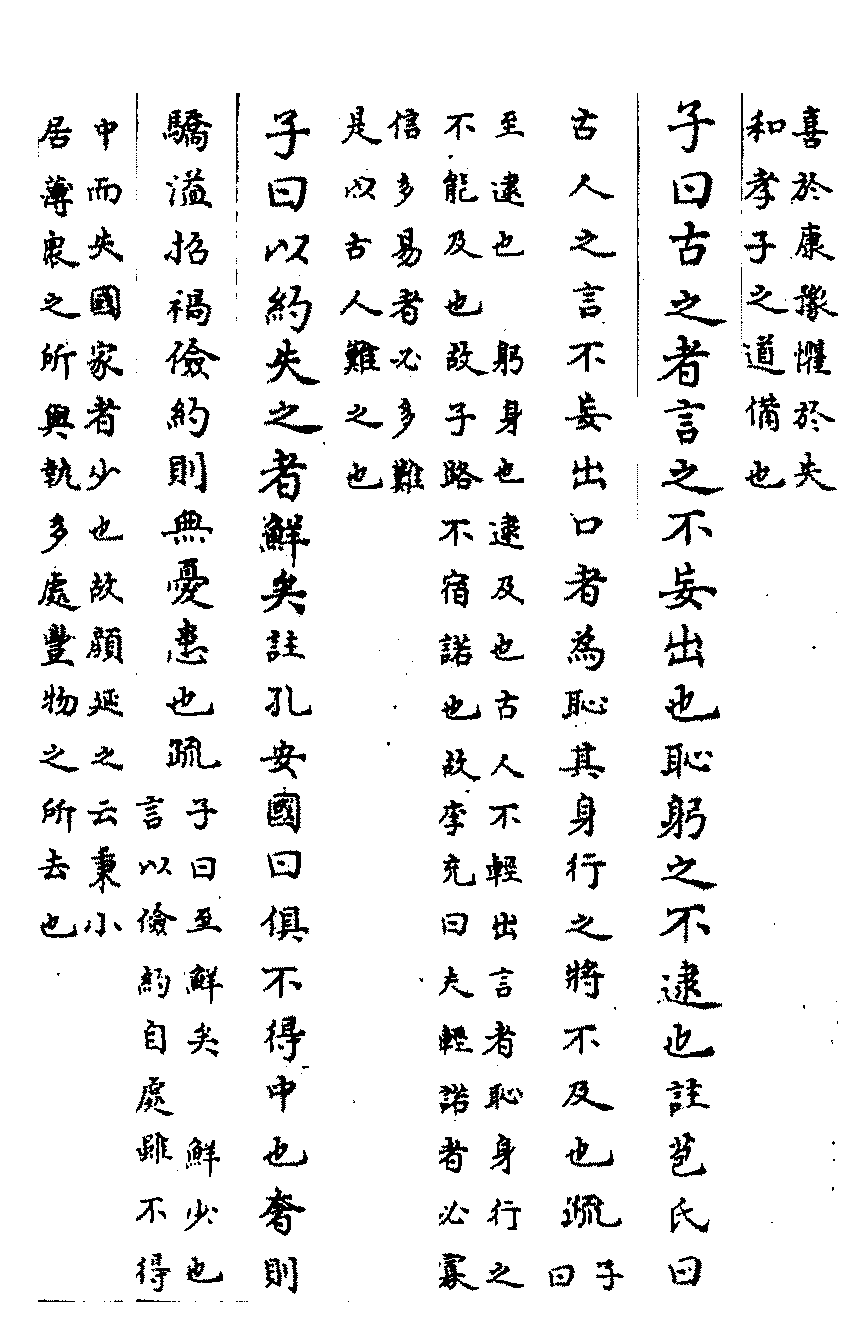 喜於康豫懼於失
和孝子之道備也
子曰古之者言之不妄出也恥躬之不逮也註苞氏曰
古人之言不妄出口者為恥其身行之將不及也疏子
曰
至逮也　躬身也逮及也古人不輕出言者恥身行之
不能及也故子路不宿諾也故李充曰夫輕諾者必寡
信多易者必多難
是以古人難之也
子曰以約失之者鮮矣註孔安國曰俱不得中也奢則
驕溢招禍儉約則無憂患也疏
子曰至鮮矣　鮮少也
言以儉約自處雖不得
中而失國家者少也故顏延之云秉小
居薄衆之所與執多處豐物之所去也